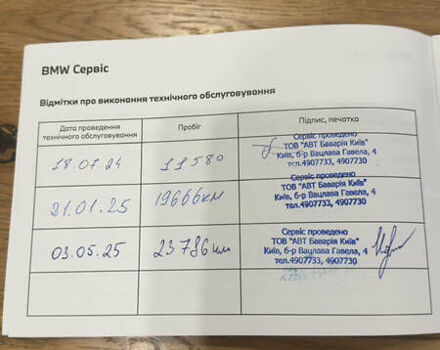 BMW Сервіс
Відмітки про виконання технічного обслуговування
Дата проведення технічного обслуговування
Пробіг
Підпис, печатка
18.07.24
11580
Сервіс проведено
ТОВ "АВТ Баварія Київ"
Київ, б-р Вацлава Гавела, 4
тел.4907733, 4907730
21.01.25
19666км
Сервіс проведено
ТОВ "АВТ Баварія Київ"
Київ, б-р Вацлава Гавела, 4
тел.4907733, 4907730
03.05.25
23786км
Сервіс проведено
ТОВ "АВТ Баварія Київ"
Київ, б-р Вацлава Гавела, 4
тел.4907733, 4907730